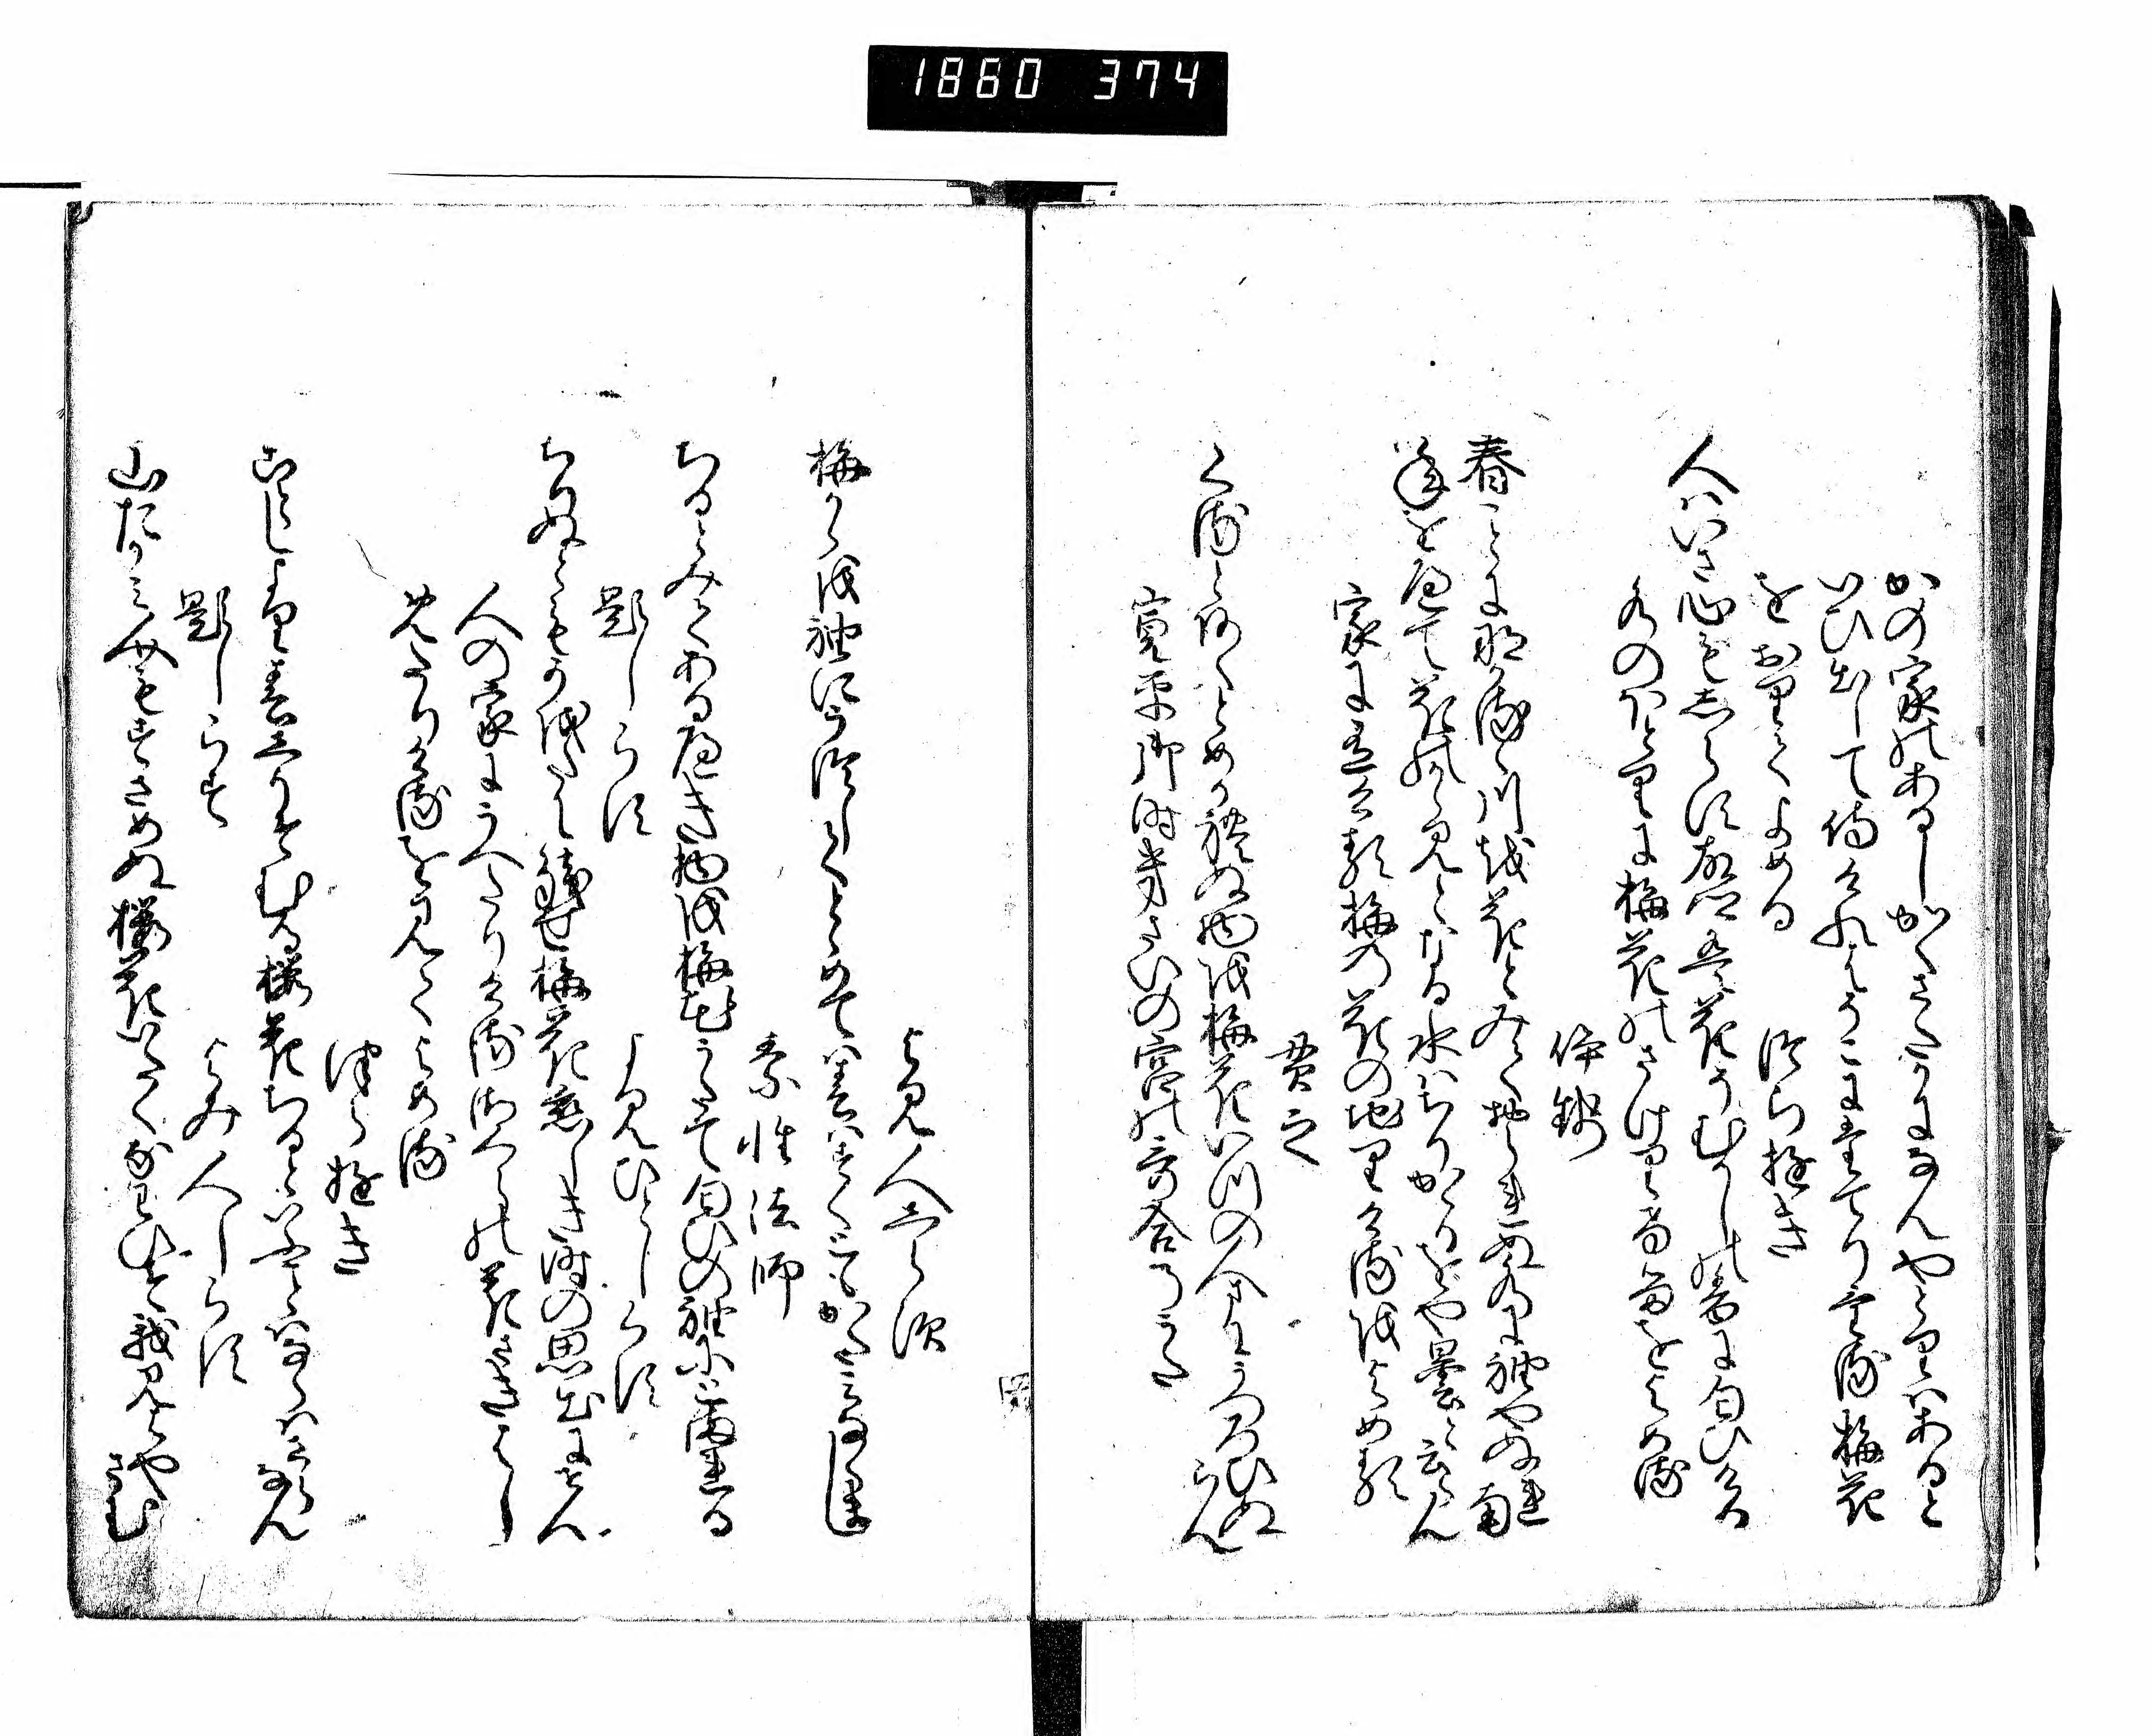 1860 374
かの家のあるしかくさたかになんやとりはあると
いひ出して侍けれはそこにたてりける梅花
をおりてよめる
つらゆき
人はいさ心もしらす故郷は花そむかしの香に匂ひける
水のほとりに梅花のさけりけるをよめる
伊勢
春ことになかるゝ川を花とみておられぬ水に袖やぬれ南
年をへて花の鏡となる水はちりかゝるをや曇ると云らん
家に有ける梅の花の地りけるをよめる
貫之
くるとあくとめかれぬ物を梅花いつの人まにうつろひぬらん
寛平御時きさいの宮の哥合のうた
よみ人しらす
梅かゝを袖にうつしてとゝめては春はすくともかたみならまし
素性法師
ちるとみてあるへき物を梅花うたて匂ひの袖にとまれる
題しらす
よみひとしらす
ちりぬともかをたに残せ梅花恋しき時の思出にせん
人の家にうへたりける桜の花さきはし
めたりけるを見てよめる
つらゆき
ことしより春しりそむる桜花ちるといふ事はならはさらなん
題しらす
よみ人しらす
山たかみ人もすさめぬ桜花いたくなわひそ我見はやさむ